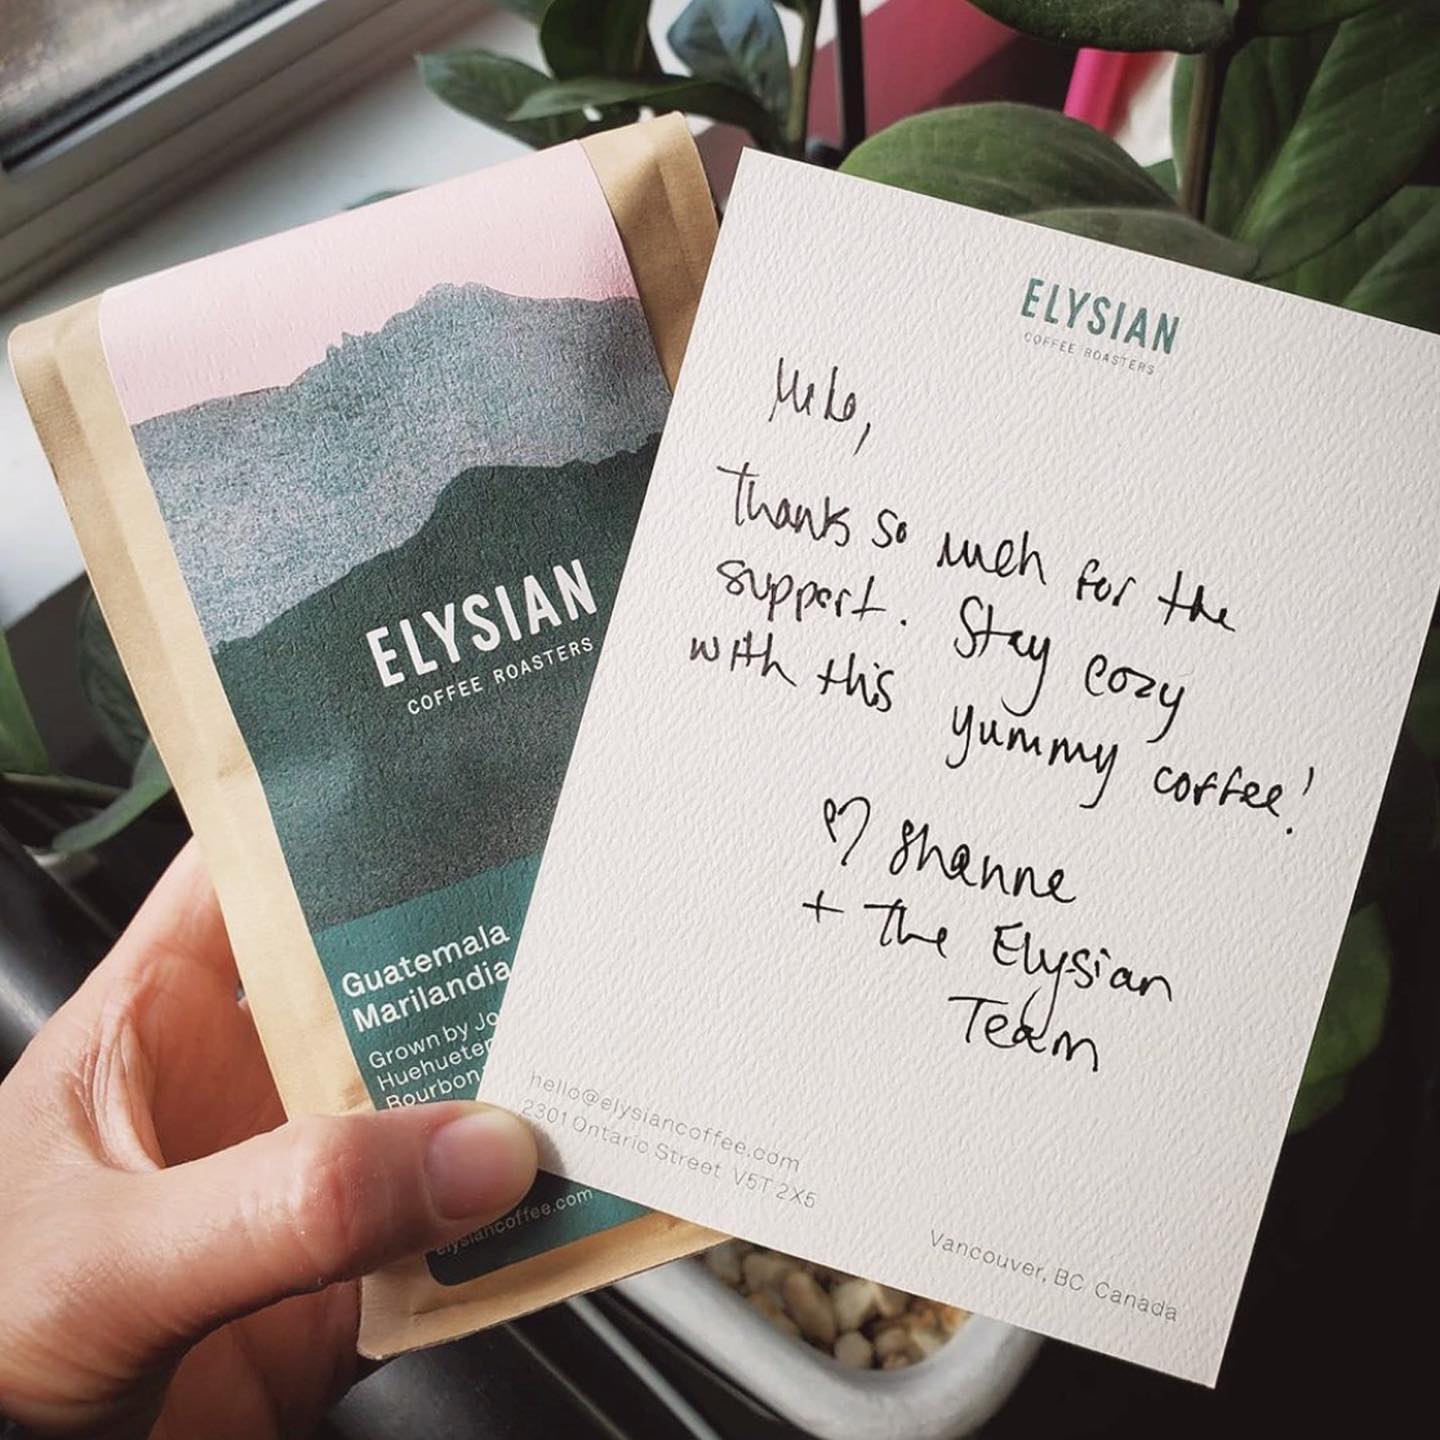 ELYSIAN
COFFEE ROASTERS
Guatemala
Marilandia
Grown by Jo
Huehueten
Bourbon
elysiancoffee.com
ELYSIAN
COFFEE ROASTERS
Thanks so much for the
support. Stay cozy
with this yummy coffee!
♡ Shanne
+ The Elysian
Team
hello@elysiancoffee.com
2301 Ontario Street V5T 2X5
Vancouver, BC Canada